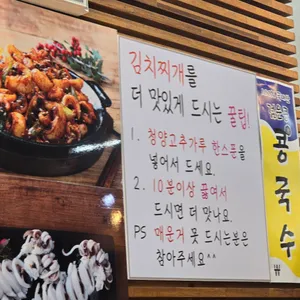 김치찌개를
더 맛있게 드시는 꿀팁!
1. 청양고추가루 한스푼을
넣어서 드세요.
2. 10분이상 끓여서
드시면 더 맛나요
PS 매운거 못 드시는분은
참아주세요^^
콩국수
₩